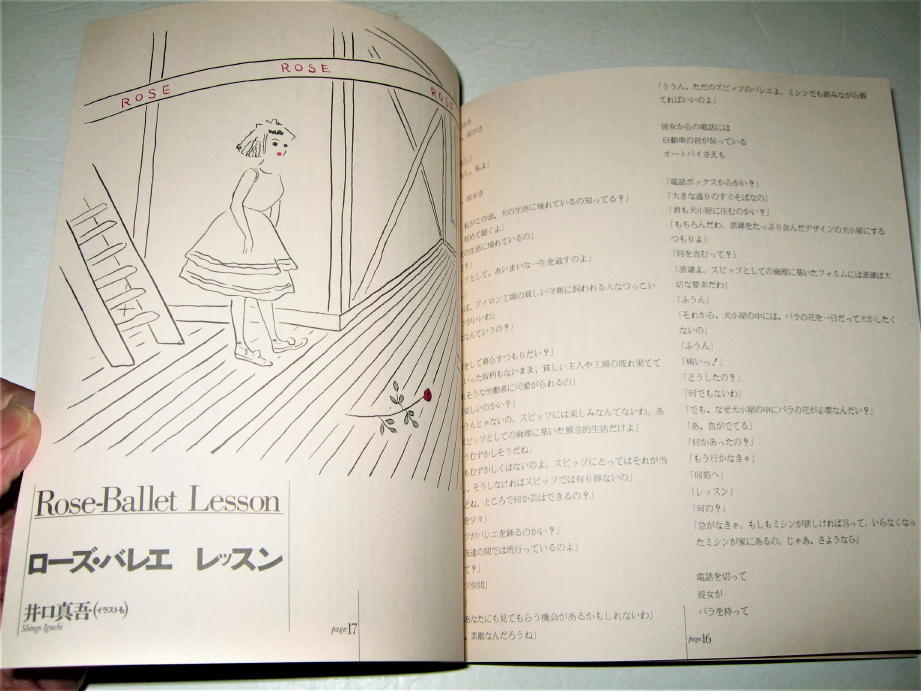 ROSE
ROSE
ROSE
Rose-Ballet Lesson
ローズ・バレエ レッスン
井口真吾(イラストも)
Shingo Iguchi
page:17
私がこの頃、犬の生活に憧れているの知ってる？」
初めて聞くよ」
の生活に憧れているの」
？」
ツとして、あいまいな一生を過すのよ」
ば、アイロン工場の貧しい守衛に飼われる人なつっこい
がいいわ」
なんていうの？」
をして暮らすつもりだい？」
いった役柄もないまま、貧しい主人や工場の疲れ果てて
そうな労働者に可愛がられるの」
楽しいのかい？」
うんじゃないの。スピッツには楽しみなんてないわ。あ
ピッツとしての倫理に基いた観念的生活だけよ」
うむずかしそうだね」
もむずかしくはないのよ。スピッツにとってはそれが当
、そうしなければスピッツでは有り得ないの」
だね。ところで何か芸はできるの？」
を少々」
がバレエを踊るのかい？」
友達の間では流行っているのよ」
て？」
ツ仲間」
あなたにも見てもらう機会があるかもしれないわ」
、素敵なんだろうね」
「ううん、ただのスピッツのバレエよ。ミシンでも踏みながら観
てればいいのよ」
彼女からの電話には
自動車の音が混っている
オートバイさえも
「電話ボックスからかい？」
「大きな通りのすぐそばなの」
「君も犬小屋に住むのかい？」
「もちろんだわ。意識をたっぷり含んだデザインの犬小屋にする
つもりよ」
「何を含むって？」
「意識よ。スピッツとしての倫理に基いたフォルムには意識は大
切な要素だわ」
「ふうん」
「それから、犬小屋の中には、バラの花を一日だって欠かしたく
ないの」
「ふうん」
「痛いっ！」
「どうしたの？」
「何でもないわ」
「でも、なぜ犬小屋の中にバラの花が必要なんだい？」
「あ、血がでてる」
「何かあったの？」
「もう行かなきゃ」
「何処へ」
「レッスン」
「何の？」
「急がなきゃ。もしもミシンが欲しければ言って。いらなくなっ
たミシンが家にあるの。じゃあ、さようなら」
電話を切って
彼女が
バラを持って
page:16